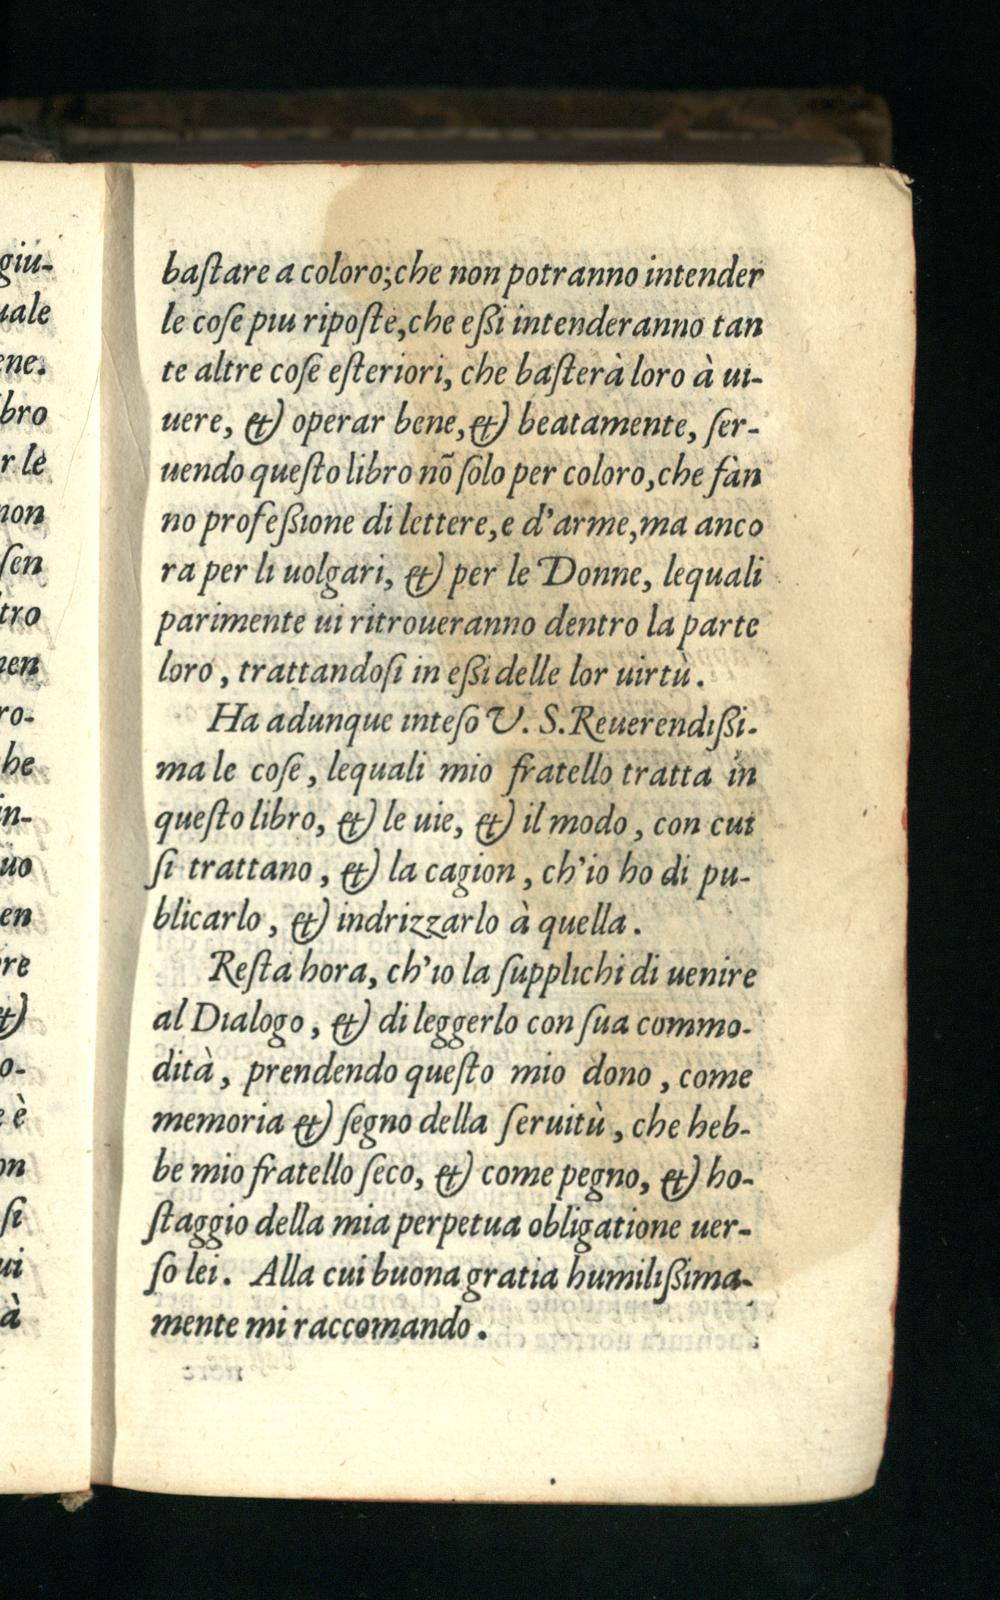 baſtare a coloro; che non potranno intender
le coſe piu ripoſte, che eßi intenderanno tan
te altre coſe eſteriori, che baſterà loro à ui-
uere, & operar bene, & beatamente, ſer-
uendo queſto libro nõ ſolo per coloro, che fan
no profeßione di lettere, e d'arme, ma anco
ra per li uolgari, & per le Donne, lequali
parimente ui ritroueranno dentro la parte
loro, trattandoſi in eßi delle lor uirtù.
Ha adunque inteſo V. S. Reuerendißi-
ma le coſe, lequali mio fratello tratta in
queſto libro, & le uie, & il modo, con cui
ſi trattano, & la cagion, ch'io ho di pu-
blicarlo, & indrizzarlo à quella.
Reſta hora, ch'io la ſupplichi di uenire
al Dialogo, & di leggerlo con ſua commo-
dità, prendendo queſto mio dono, come
memoria & ſegno della ſeruitù, che heb-
be mio fratello ſeco, & come pegno, & ho-
ſtaggio della mia perpetua obligatione uer-
ſo lei. Alla cui buona gratia humilißima-
mente mi raccomando.